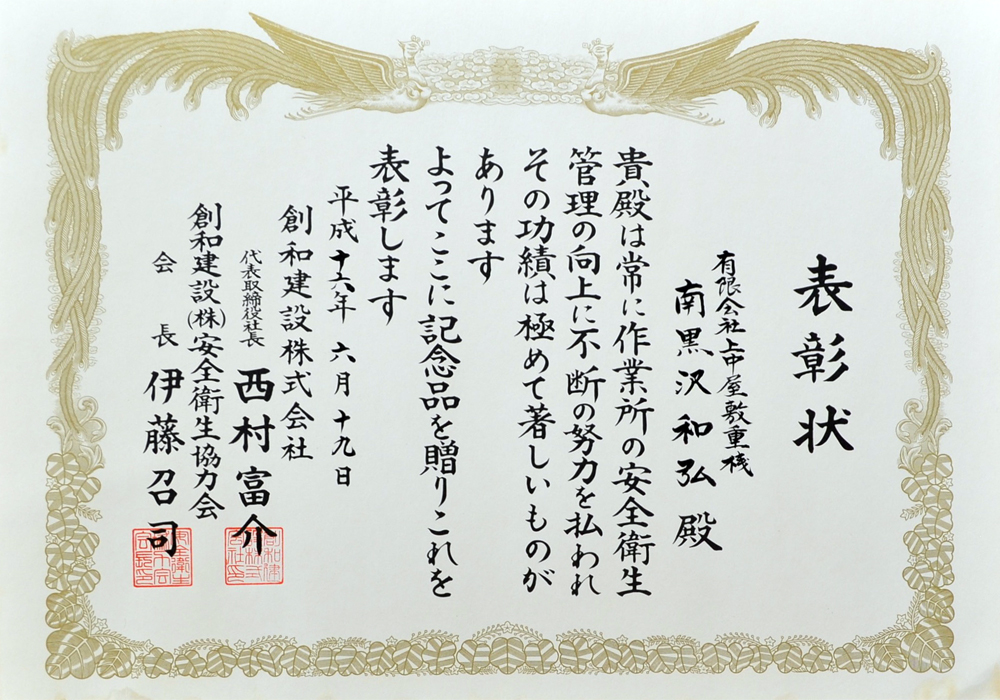 表彰状
有限会社上中屋敷重機
南黒沢和弘殿
貴殿は常に作業所の安全衛生
管理の向上に不断の努力を払われ
その功績は極めて著しいものが
あります
よってここに記念品を贈りこれを
表彰します
平成十六年六月十九日
創和建設株式会社
代表取締役社長 西村富介
創和建設(株)安全衛生協力会
会長 伊藤召司